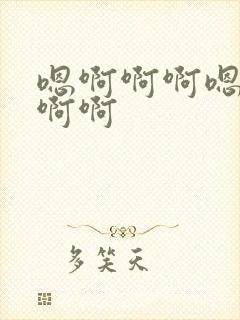 嗯啊啊啊嗯
啊啊
多笑天